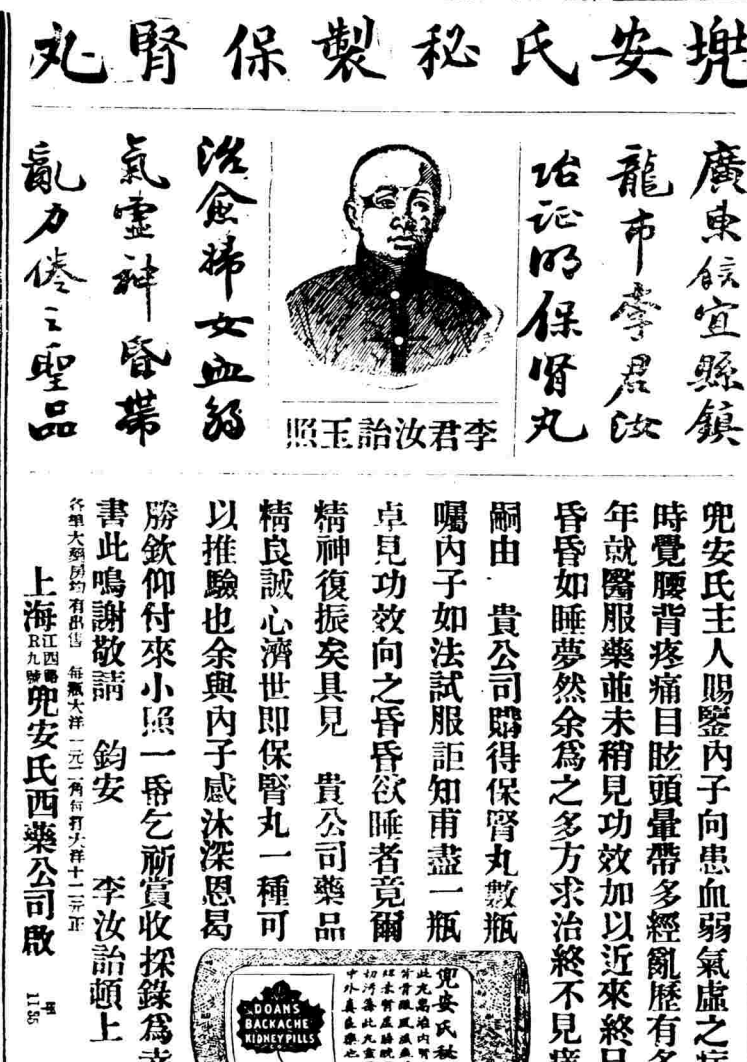 兜安氏秘製保腎丸
廣東饒宜縣鎮
龍市李君汝
詒証明保腎丸
李君汝詒玉照
治愈婦女血弱
氣靈神昏帶
亂力倦之聖品
兜安氏主人賜鑒內子向患血弱氣虛之
時覺腰背疼痛目眩頭暈帶多經亂歷有
年就醫服藥並未稍見功效加以近來終日
昏昏如睡夢然余為之多方求治終不見
嗣由 貴公司購得保腎丸數瓶
囑內子如法試服詎知甫盡一瓶
卓見功效向之昏昏欲睡者竟爾
精神復振矣具見 貴公司藥品
精良誠心濟世即保腎丸一種可
以推驗也余與內子感沐深恩曷
勝欽仰付來小照一帋乞祈賞收採錄為幸
書此鳴謝敬請 鈞安 李汝詒頓上
各埠大藥房均有出售 每瓶大洋一元二角每打大洋十二元正
上海江西路R九號兜安氏西藥公司啟
兜安氏秘
DOANS
BACKACHE
KIDNEY PILLS